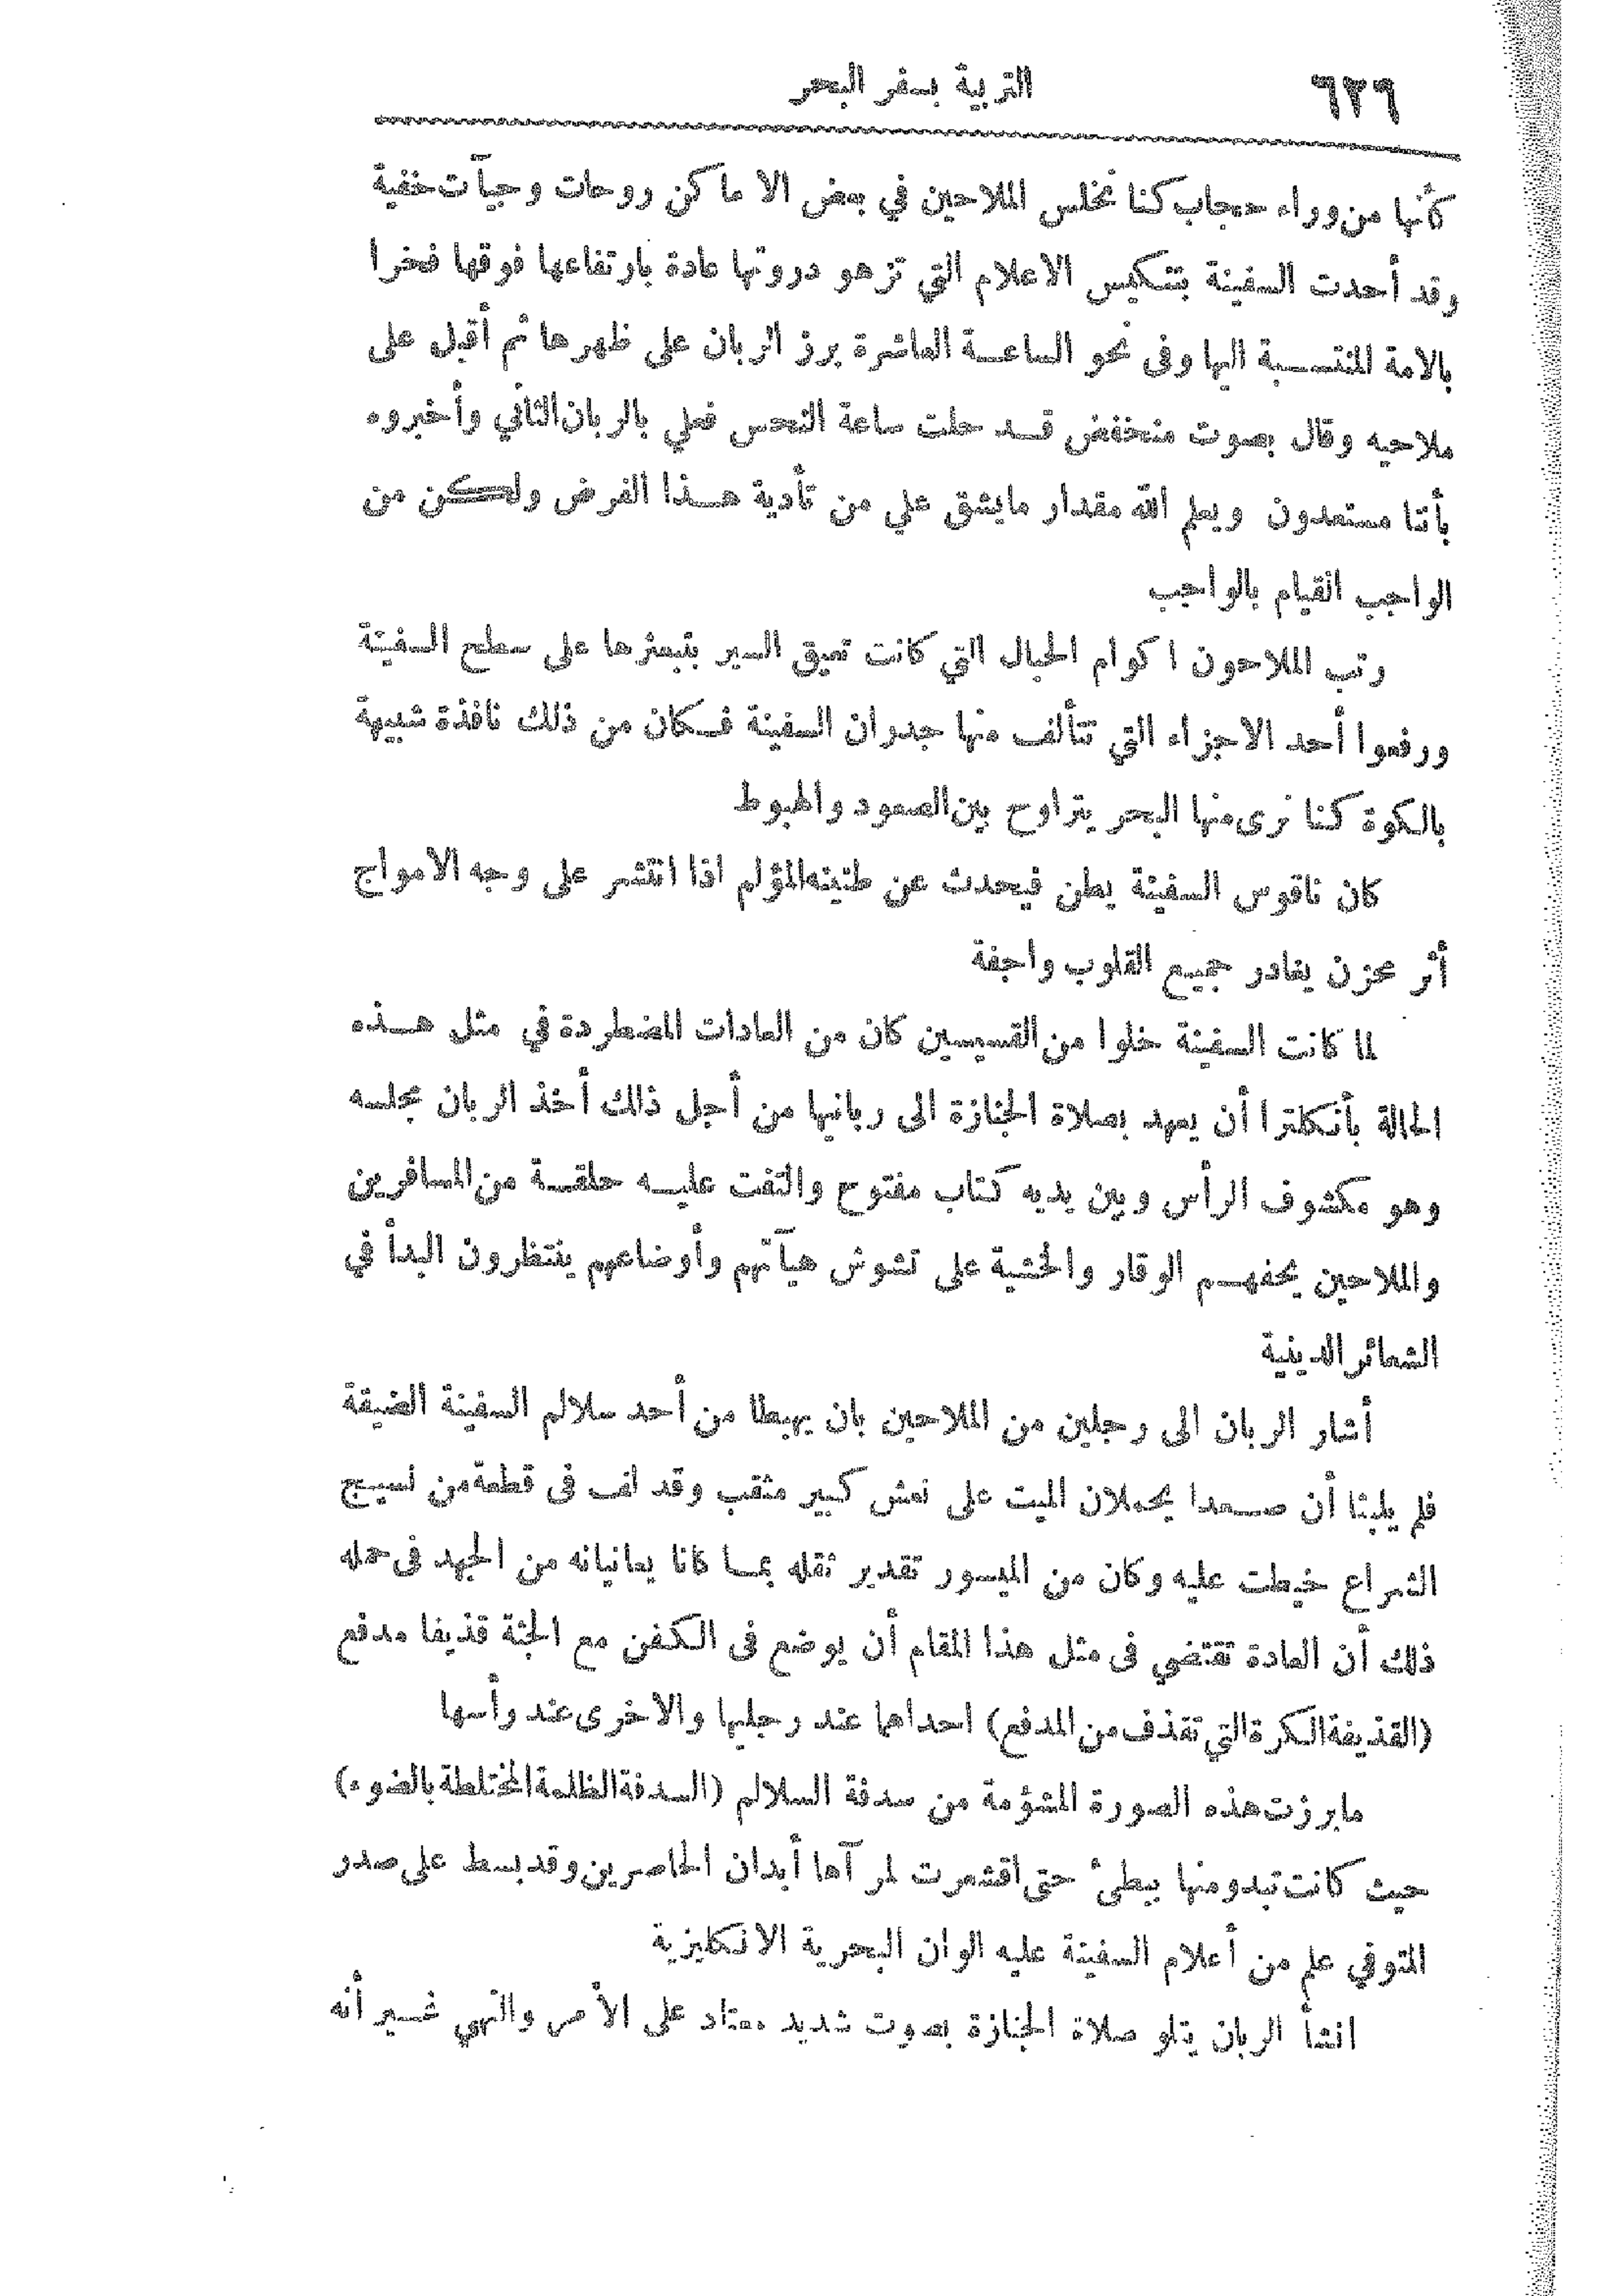 ٦٢٩ التربية بسفر البحر
كأنها من وراء حجاب كنا نختلس الملاحين في بعض الاماكن روحات وجيآت خفية
وقد أحدت السفينة بتنكيس الاعلام التي تزهو دروتها عادة بارتفاعها فوقها فخرا
بالامة المنتسبة اليها وفى نحو الساعة العاشرة برز الربان على ظهرها ثم أقبل على
ملاحيه وقال بصوت منخفض قد حلت ساعة النحس فعلي بالربان الثاني وأخبروه
بأننا مستعدون ويعلم الله مقدار مايشق علي من تأدية هذا الفرض ولكن من
الواجب القيام بالواجب
رتب الملاحون اكوام الحبال التي كانت تعيق السير بتبعثرها على سطح السفينة
ورفعوا أحد الاجزاء التي تتألف منها جدران السفينة فكان من ذلك نافذة شبيهة
بالكوة كنا نرى منها البحر يتراوح بين الصعود والهبوط
كان ناقوس السفينة يطن فيحدث عن طنينه المؤلم اذا انتشر على وجه الامواج
أثر محزن يغادر جميع القلوب واجفة
لما كانت السفينة خلوا من القسيسين كان من العادات المضطردة في مثل هذه
الحالة بأنكلترا أن يعهد بصلاة الجنازة الى ربانيها من أجل ذالك أخذ الربان مجلسه
وهو مكشوف الرأس وبين يديه كتاب مفتوح والتفت عليه حلقة من المسافرين
والملاحين يحفهم الوقار والخشية على تشوش هيآتهم وأوضاعهم ينتظرون البدأ في
الشعائر الدينية
أشار الربان الى رجلين من الملاحين بان يهبطا من أحد سلالم السفينة الضيقة
فلم يلبثا أن صعدا يحملان الميت على نعش كبير مثقب وقد لف فى قطعة من نسيج
الشراع خيطت عليه وكان من الميسور تقدير ثقله بما كانا يعانيانه من الجهد فى حمله
ذلك أن العادة تقتضي فى مثل هذا المقام أن يوضع فى الكفن مع الجثة قذيفا مدفع
(القذيفة الكرة التي تقذف من المدفع) احداهما عند رجليها والاخرى عند رأسها
مابرزت هذه الصورة المشؤمة من سدفة السلالم (السدفة الظلمة المختلطة بالضوء)
حيث كانت تبدو منها ببطئ حتى اقشعرت لمرآها أبدان الحاضرين وقد بسط على صدر
المتوفي علم من أعلام السفينة عليه الوان البحرية الانكليزية
انشأ الربان يتلو صلاة الجنازة بصوت شديد معتاد على الأمر والنهي غير أنه